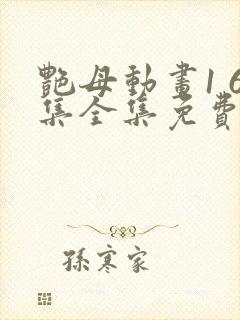 艷母動畫1 6
集全集免費
孫寒家